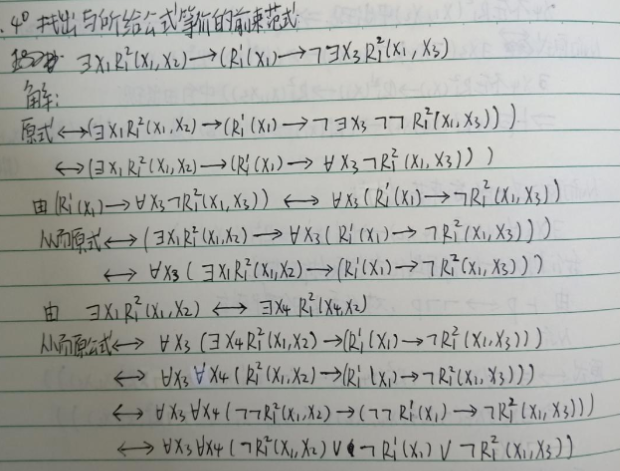 . 4° 找出与所给公式等价的前束范式
∃x₁R₁²(x₁,x₂)→(R₁¹(x₁)→¬∃x₃R₁²(x₁,x₃)
解:
原式↔(∃x₁R₁²(x₁,x₂)→(R₁¹(x₁)→¬∃x₃¬¬R₁²(x₁,x₃)))
↔(∃x₁R₁²(x₁,x₂)→(R₁¹(x₁)→∀x₃¬R₁²(x₁,x₃)))
由(R₁¹(x₁)→∀x₃¬R₁²(x₁,x₃))↔∀x₃(R₁¹(x₁)→¬R₁²(x₁,x₃))
从而原式↔(∃x₁R₁²(x₁,x₂)→∀x₃(R₁¹(x₁)→¬R₁²(x₁,x₃)))
↔∀x₃(∃x₁R₁²(x₁,x₂)→(R₁¹(x₁)→¬R₁²(x₁,x₃)))
由 ∃x₁R₁²(x₁,x₂)↔∃x₄R₁²(x₄,x₂)
从而原公式↔∀x₃(∃x₄R₁²(x₁,x₂)→(R₁¹(x₁)→¬R₁²(x₁,x₃)))
↔∀x₃∀x₄(R₁²(x₁,x₂)→(R₁¹(x₁)→¬R₁²(x₁,x₃)))
↔∀x₃∀x₄(¬¬R₁²(x₁,x₂)→(¬¬R₁¹(x₁)→¬R₁²(x₁,x₃)))
↔∀x₃∀x₄(¬R₁²(x₁,x₂)∨(¬R₁¹(x₁)∨¬R₁²(x₁,x₃))